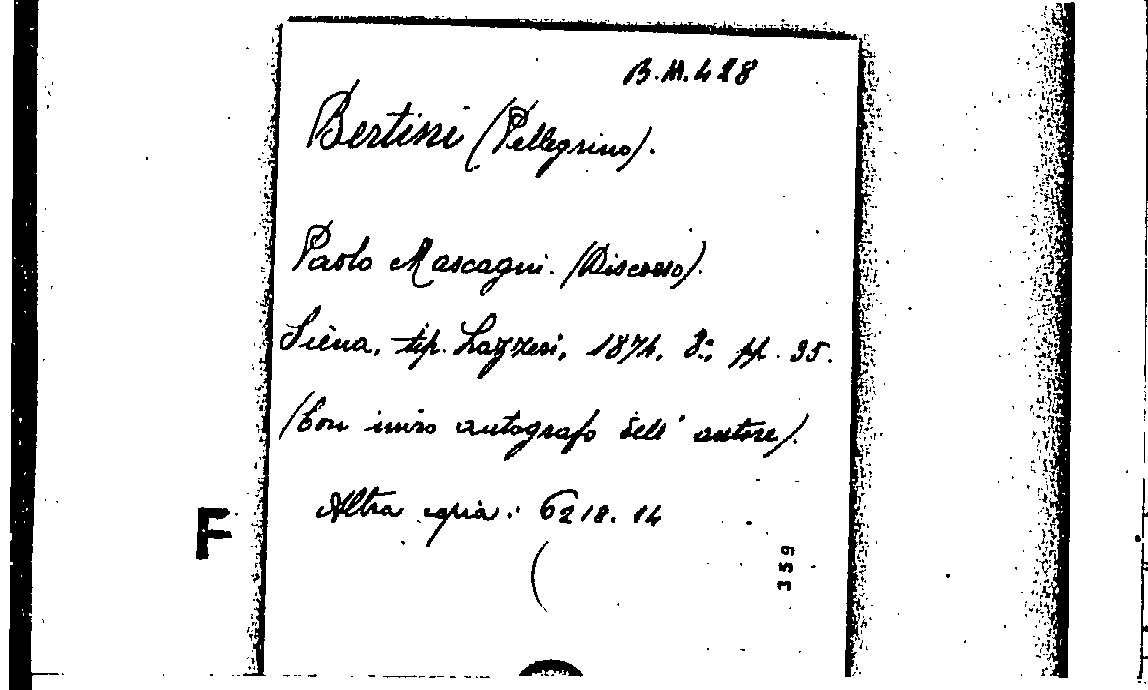 B.M.428
Bertini (Pellegrino).
Paolo Mascagni. (Discorso).
Siena, tip. Lazzeri, 1874, 8º, pp. 35.
(Con invio autografo dell' autore).
Altra copia: 6218. 14
F
359